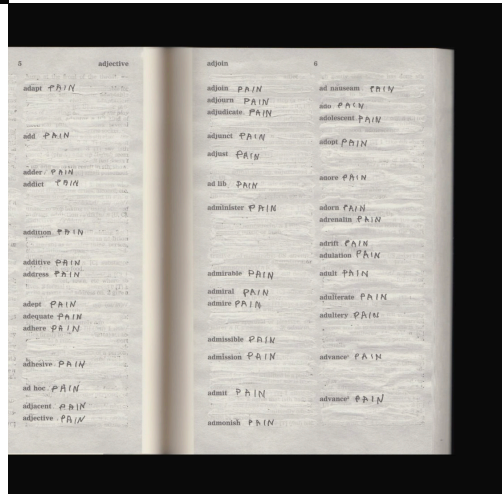 5 adjective
adapt PAIN
add PAIN
adder PAIN
addict PAIN
addition PAIN
additive PAIN
address PAIN
adept PAIN
adequate PAIN
adhere PAIN
adhesive PAIN
ad hoc PAIN
adjacent PAIN
adjective PAIN
adjoin 6
adjoin PAIN
adjourn PAIN
adjudicate PAIN
adjunct PAIN
adjust PAIN
ad lib PAIN
administer PAIN
admirable PAIN
admiral PAIN
admire PAIN
admissible PAIN
admission PAIN
admit PAIN
admonish PAIN
ad nauseam PAIN
ado PAIN
adolescent PAIN
adopt PAIN
adore PAIN
adorn PAIN
adrenalin PAIN
adrift PAIN
adulation PAIN
adult PAIN
adulterate PAIN
adultery PAIN
advance¹ PAIN
advance² PAIN